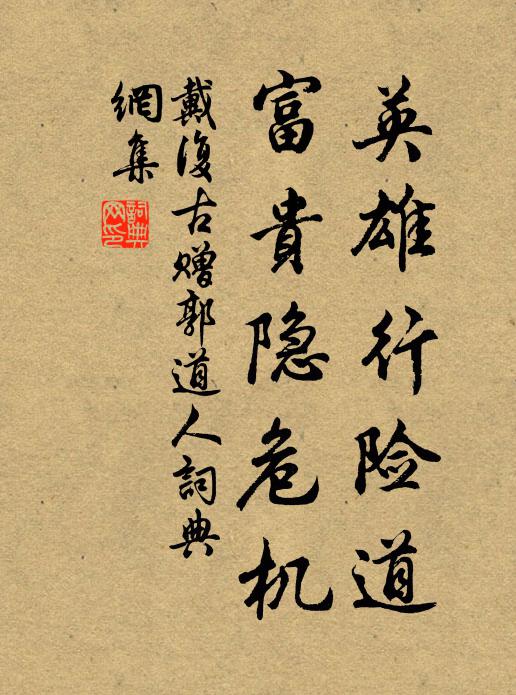 英雄行险道
富貴隐危机
戴復古赠郭道人詞典
網集
詞典网印